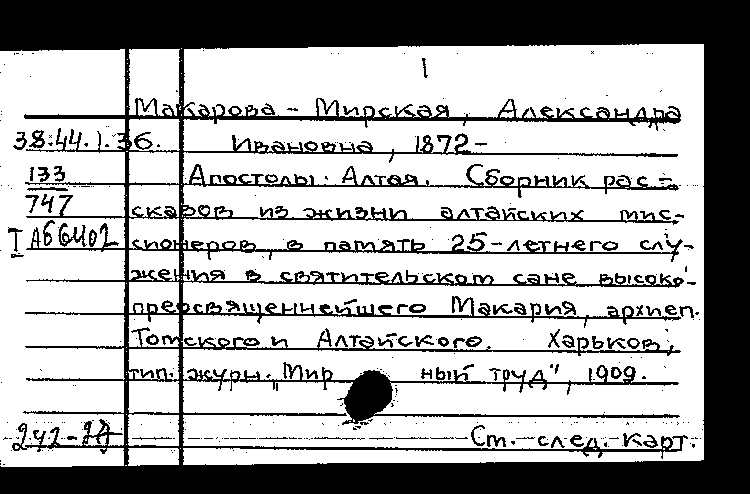 1
Макарова - Мирская, Александра
38.44.1.36. Ивановна, 1872-
133 Апостолы Алтая. Сборник рас-
747 сказов из жизни алтайских мис-
сионеров, в память 25-летнего слу-
жения в святительском сане высоко-
преосвященнейшего Макария, архиеп.
Томского и Алтайского. Харьков,
тип. журн. „Мир ный труд", 1909.
Ст. след. карт.